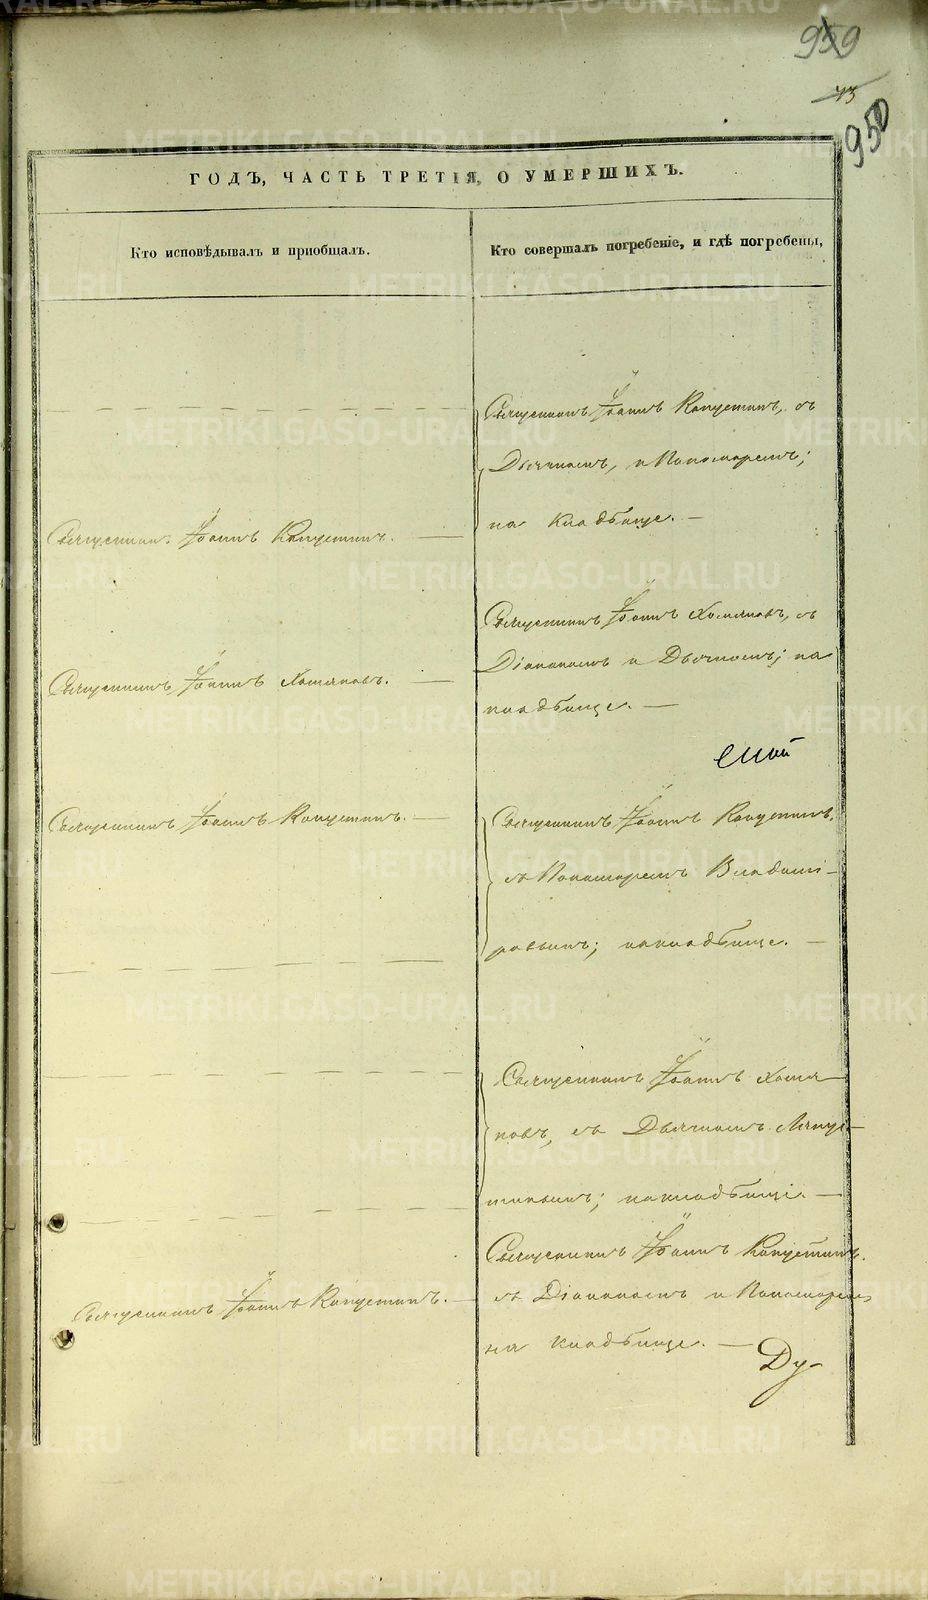 959
43
950
ГОДЪ, ЧАСТЬ ТРЕТІЯ, О УМЕРШИХЪ.
Кто исповѣдывалъ и пріобщалъ.
Кто совершалъ погребеніе, и гдѣ погребены,
Священникъ Іоаннъ Капустинъ, съ
Дьячкомъ, и Пономаремъ;
на кладбище. —
Священник: Іоаннъ Капустинъ. —
Священникъ Іоаннъ Хомяковъ, съ
Діакономъ и Дьячкомъ; на
кладбище. —
Священникъ Іоаннъ Хомяковъ. —
Священникъ Іоаннъ Капустинъ. —
Священникъ Іоаннъ Капустинъ,
съ Пономаремъ Владими-
ровымъ; на кладбище. —
Священникъ Іоаннъ Хомя-
ковъ, съ Дьячкомъ
на кладбище. —
Священникъ Іоаннъ Капустинъ.
съ Діакономъ и Пономаремъ
на кладбище. —
Священникъ Іоаннъ Капустинъ. —
Ду-
METRIKI.GASO-URAL.RU